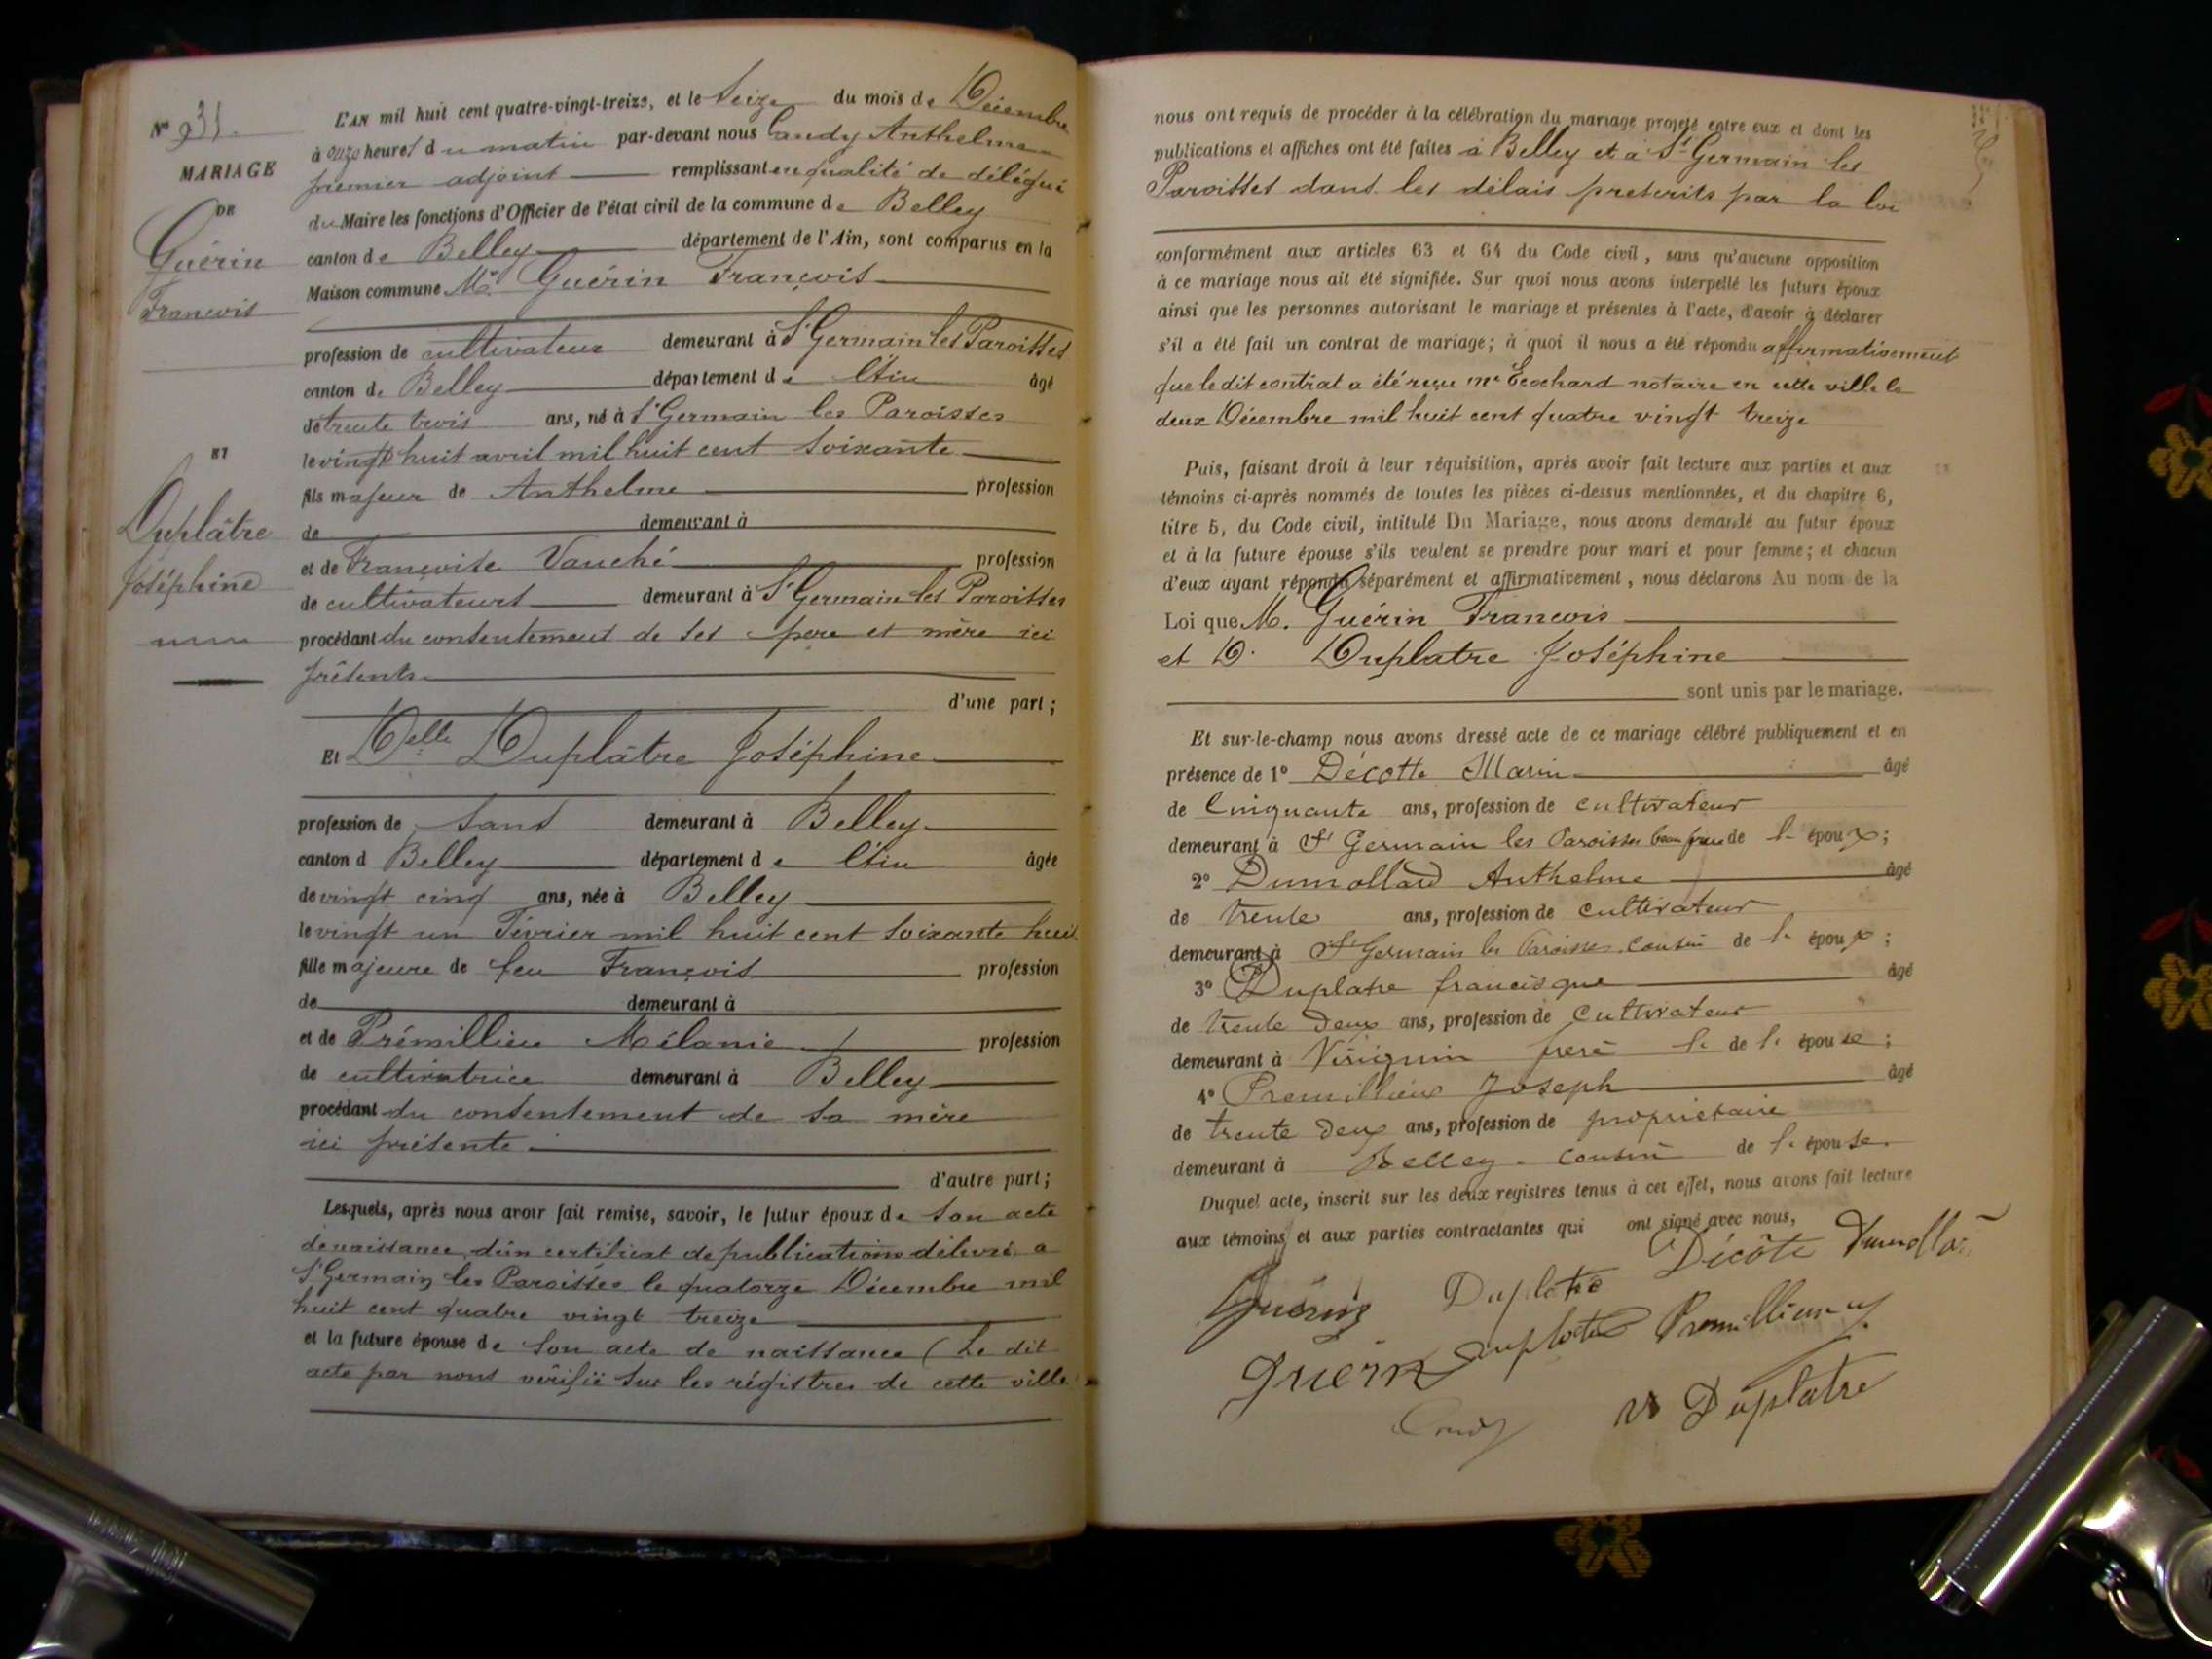 N° 31.
MARIAGE
DE
Guérin
François
ET
Duplâtre
Joséphine
L'AN mil huit cent quatre-vingt-treize, et le Seize du mois de Décembre
à onze heures du matin par-devant nous Candy Anthelme
premier adjoint remplissant en qualité de délégué
du Maire les fonctions d'Officier de l'état civil de la commune de Belley
canton de Belley département de l'Ain, sont comparus en la
Maison commune Mr Guérin François
profession de cultivateur demeurant à St Germain les Paroisses
canton de Belley département de l'Ain âgé
de trente trois ans, né à St Germain les Paroisses
le vingt huit avril mil huit cent soixante
fils majeur de Anthelme profession
de demeurant à
et de Françoise Vauché profession
de cultivateurs demeurant à St Germain les Paroisses
procédant du consentement de ses père et mère ici
présents
d'une part ;
Et Delle Duplâtre Joséphine
profession de sans demeurant à Belley
canton d Belley département de l'Ain âgée
de vingt cinq ans, née à Belley
le vingt un Février mil huit cent soixante huit
fille majeure de feu François profession
de demeurant à
et de Prémillieu Mélanie profession
de cultivatrice demeurant à Belley
procédant du consentement de sa mère
ici présente
d'autre part ;
Lesquels, après nous avoir fait remise, savoir, le futur époux de son acte
de naissance, d'un certificat de publications délivré a
St Germain les Paroisses le quatorze Décembre mil
huit cent quatre vingt treize
et la future épouse de son acte de naissance (Le dit
acte par nous vérifié sur les régistres de cette ville
nous ont requis de procéder à la célébration du mariage projeté entre eux et dont les
publications et affiches ont été faites à Belley et à St Germain les
Paroisses dans les délais prescrits par la loi
conformément aux articles 63 et 64 du Code civil, sans qu'aucune opposition
à ce mariage nous ait été signifiée. Sur quoi nous avons interpellé les futurs époux
ainsi que les personnes autorisant le mariage et présentes à l'acte, d'avoir à déclarer
s'il a été fait un contrat de mariage ; à quoi il nous a été répondu affirmativement
que le dit contrat a été reçu me Ecochard notaire en cette ville le
deux Décembre mil huit cent quatre vingt treize
Puis, faisant droit à leur réquisition, après avoir fait lecture aux parties et aux
témoins ci-après nommés de toutes les pièces ci-dessus mentionnées, et du chapitre 6,
titre 5, du Code civil, intitulé Du Mariage, nous avons demandé au futur époux
et à la future épouse s'ils veulent se prendre pour mari et pour femme ; et chacun
d'eux ayant répondu séparément et affirmativement, nous déclarons Au nom de la
Loi que M. Guérin François
et D. Duplatre Joséphine
sont unis par le mariage.
Et sur-le-champ nous avons dressé acte de ce mariage célébré publiquement et en
présence de 1° Décotte Marin âgé
de Cinquante ans, profession de cultivateur
demeurant à St Germain les Paroisses beau frere de l. époux ;
2° Dumollard Anthelme âgé
de trente ans, profession de cultivateur
demeurant à St Germain les Paroisses cousin de l. époux ;
3° Duplatre francisque âgé
de trente deux ans, profession de cultivateur
demeurant à Virignin frere l. de l. épouse ;
4° Premillieux Joseph âgé
de trente deux ans, profession de propriétaire
demeurant à Belley cousin de l. épouse.
Duquel acte, inscrit sur les deux registres tenus à cet effet, nous avons fait lecture
aux témoins et aux parties contractantes qui ont signé avec nous,
Décôte Dumollar
Guérin Duplatre
Guérin Duplatre Premillieux
Candy Duplatre